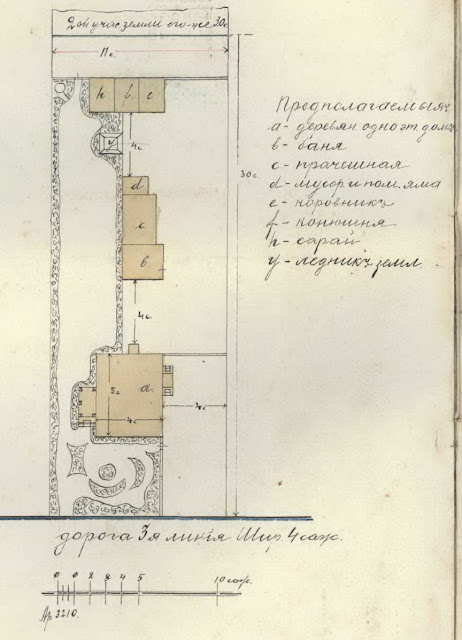 2ой учас. земли его-же 30с
11с.
h f e
4с.
d
c
b
4с.
30с.
5с
a
4с
4с
Предполагаемыя:
a - деревян. одноэт. домъ
b - баня
c - прачешная
d - мусор. и пом. яма
e - коровникъ
f - конюшня
h - сарай
y - ледникъ земл.
дорога 3я линiя Шир. 4 саж.
0 0 2 3 4 5 10 саж.
Ар 3210.